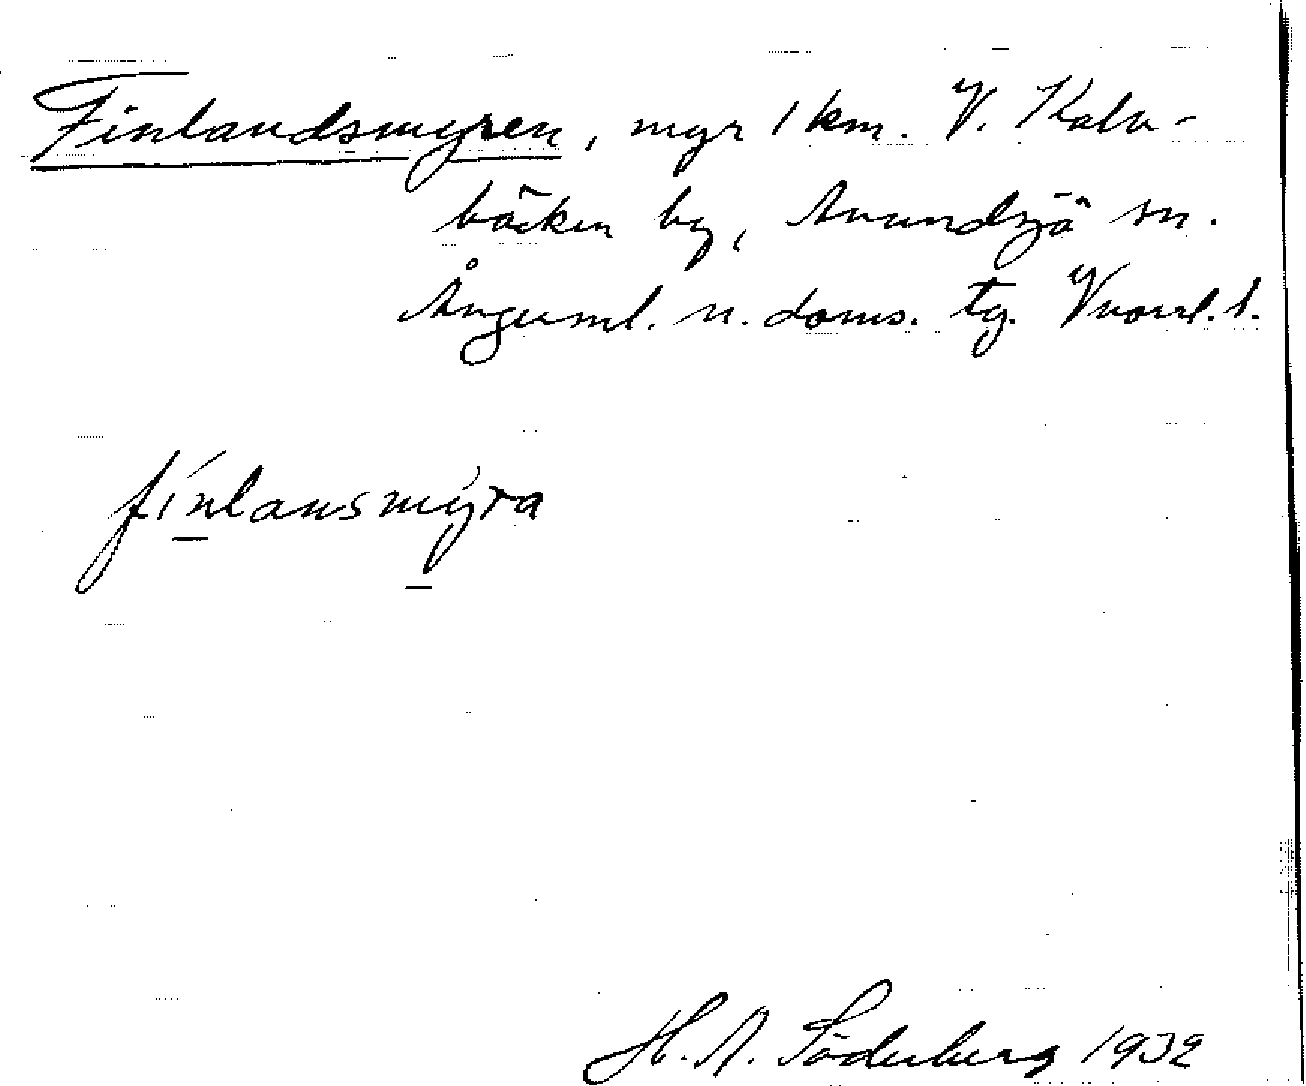 Finlandsmyren, myr 1 km. V. Kalv-
bäcken by, Anundsjö sn.
Ångerml. n. doms. tg. Vnorrl. l.
finlansmýra
H. A. Söderberg 1932